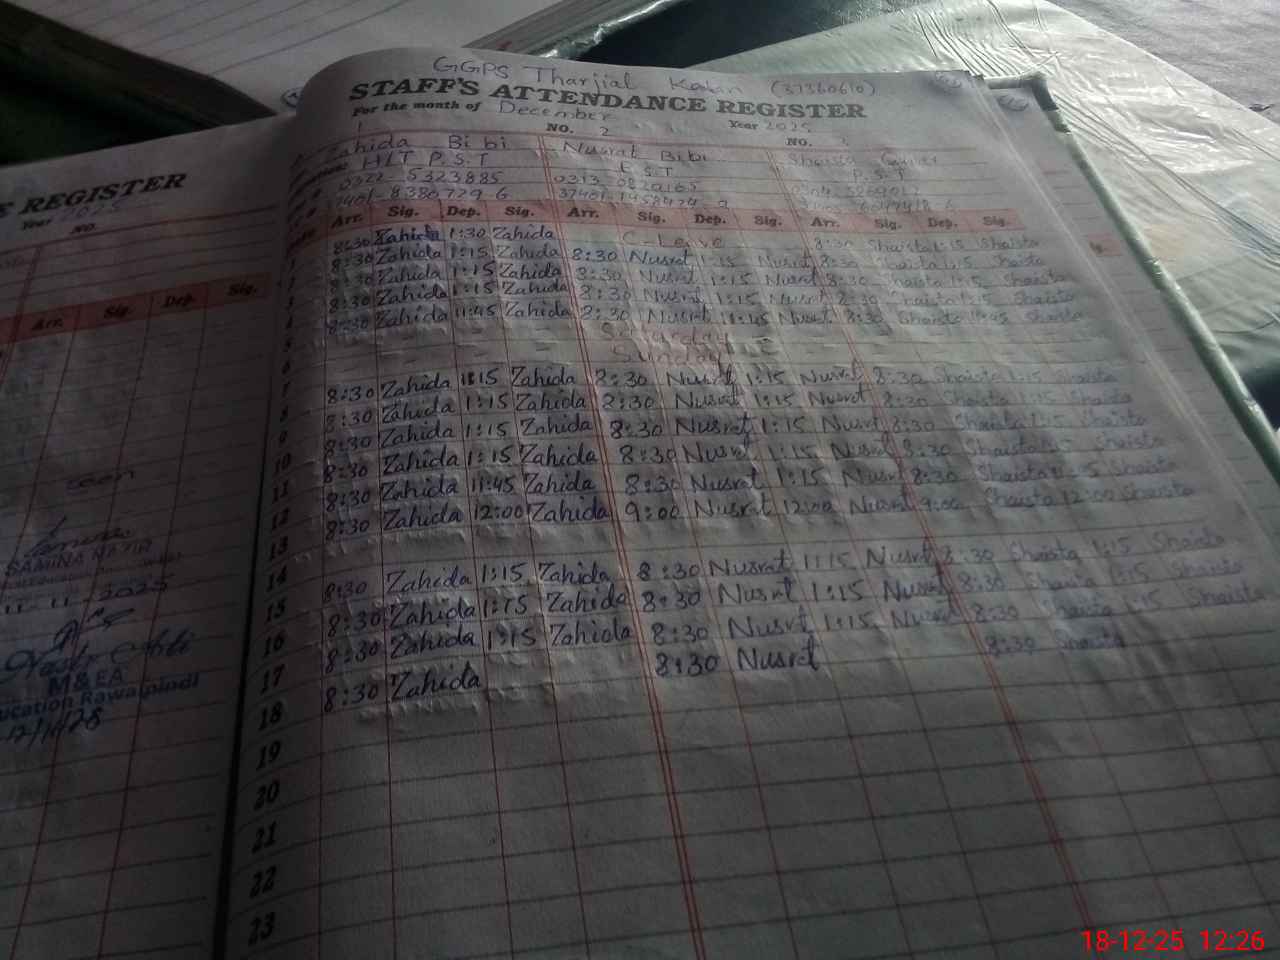 GGPS Tharjial Kalan (37360610)
STAFF'S ATTENDANCE REGISTER
For the month of December Year 2025
NO. 2 NO.
Zahida Bibi Nusrat Bibi Shaista
P.S.T P.S.T
0322-5323885
Arr. Sig. Dep. Sig. Arr. Sig. Dep. Sig. Arr. Sig. Dep. Sig.
8:30 Zahida 1:30 Zahida C-Leave 8:30 Shaista 1:15 Shaista
8:30 Zahida 1:15 Zahida 8:30 Nusrat 1:15 Nusrat 8:30 Shaista 1:15 Shaista
8:30 Zahida 1:15 Zahida 8:30 Nusrat 1:15 Nusrat 8:30 Shaista 1:15 Shaista
8:30 Zahida 1:15 Zahida 8:30 Nusrat 1:15 Nusrat 8:30 Shaista 1:15 Shaista
8:30 Zahida 11:45 Zahida 8:30 Nusrat 11:45 Nusrat 8:30 Shaista 11:45 Shaista
Saturday
Sunday
8:30 Zahida 1:15 Zahida 8:30 Nusrat 1:15 Nusrat 8:30 Shaista 1:15 Shaista
8:30 Zahida 1:15 Zahida 8:30 Nusrat 1:15 Nusrat 8:30 Shaista 1:15 Shaista
8:30 Zahida 1:15 Zahida 8:30 Nusrat 1:15 Nusrat 8:30 Shaista 1:15 Shaista
8:30 Zahida 1:15 Zahida 8:30 Nusrat 1:15 Nusrat 8:30 Shaista Shaista
8:30 Zahida 11:45 Zahida 8:30 Nusrat 1:15 Nusrat 8:30 Shaista Shaista
8:30 Zahida 12:00 Zahida 9:00 Nusrat 12:00 Nusrat 9:00 Shaista 12:00 Shaista
8:30 Zahida 1:15 Zahida 8:30 Nusrat 1:15 Nusrat 8:30 Shaista 1:15 Shaista
8:30 Zahida 1:15 Zahida 8:30 Nusrat 1:15 Nusrat 8:30 Shaista 1:15 Shaista
8:30 Zahida 1:15 Zahida 8:30 Nusrat 1:15 Nusrat 8:30 Shaista 1:15 Shaista
8:30 Zahida 8:30 Nusrat 8:30 Shaista
7
8
9
10
11
12
13
14
15
16
17
18
19
20
21
22
23
E REGISTER
Year 2025
NO.
Arr. Sig. Dep. Sig.
seen
SAMINA NAZIR
11-11-2025
M&EA
ucation Rawalpindi
18-12-25 12:26